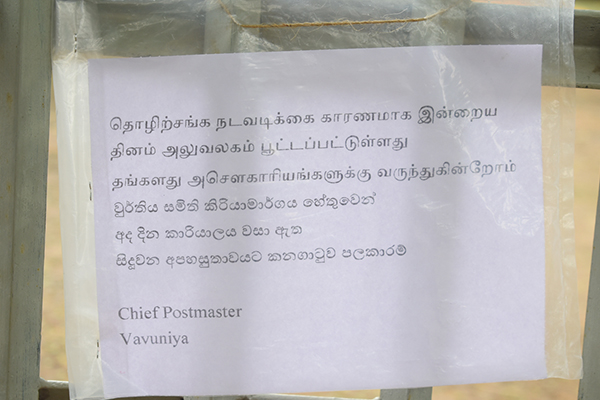 தொழிற்சங்க நடவடிக்கை காரணமாக இன்றைய
தினம் அலுவலகம் பூட்டப்பட்டுள்ளது
தங்களது அசௌகாரியங்களுக்கு வருந்துகின்றோம்
වුර්තිය සමිති ක්‍රියාමාර්ගය හේතුවෙන්
අද දින කාරියාලය වසා ඇත
සිදුවන අපහසුතාවයට කනගාටුව පලකාරම්
Chief Postmaster
Vavuniya